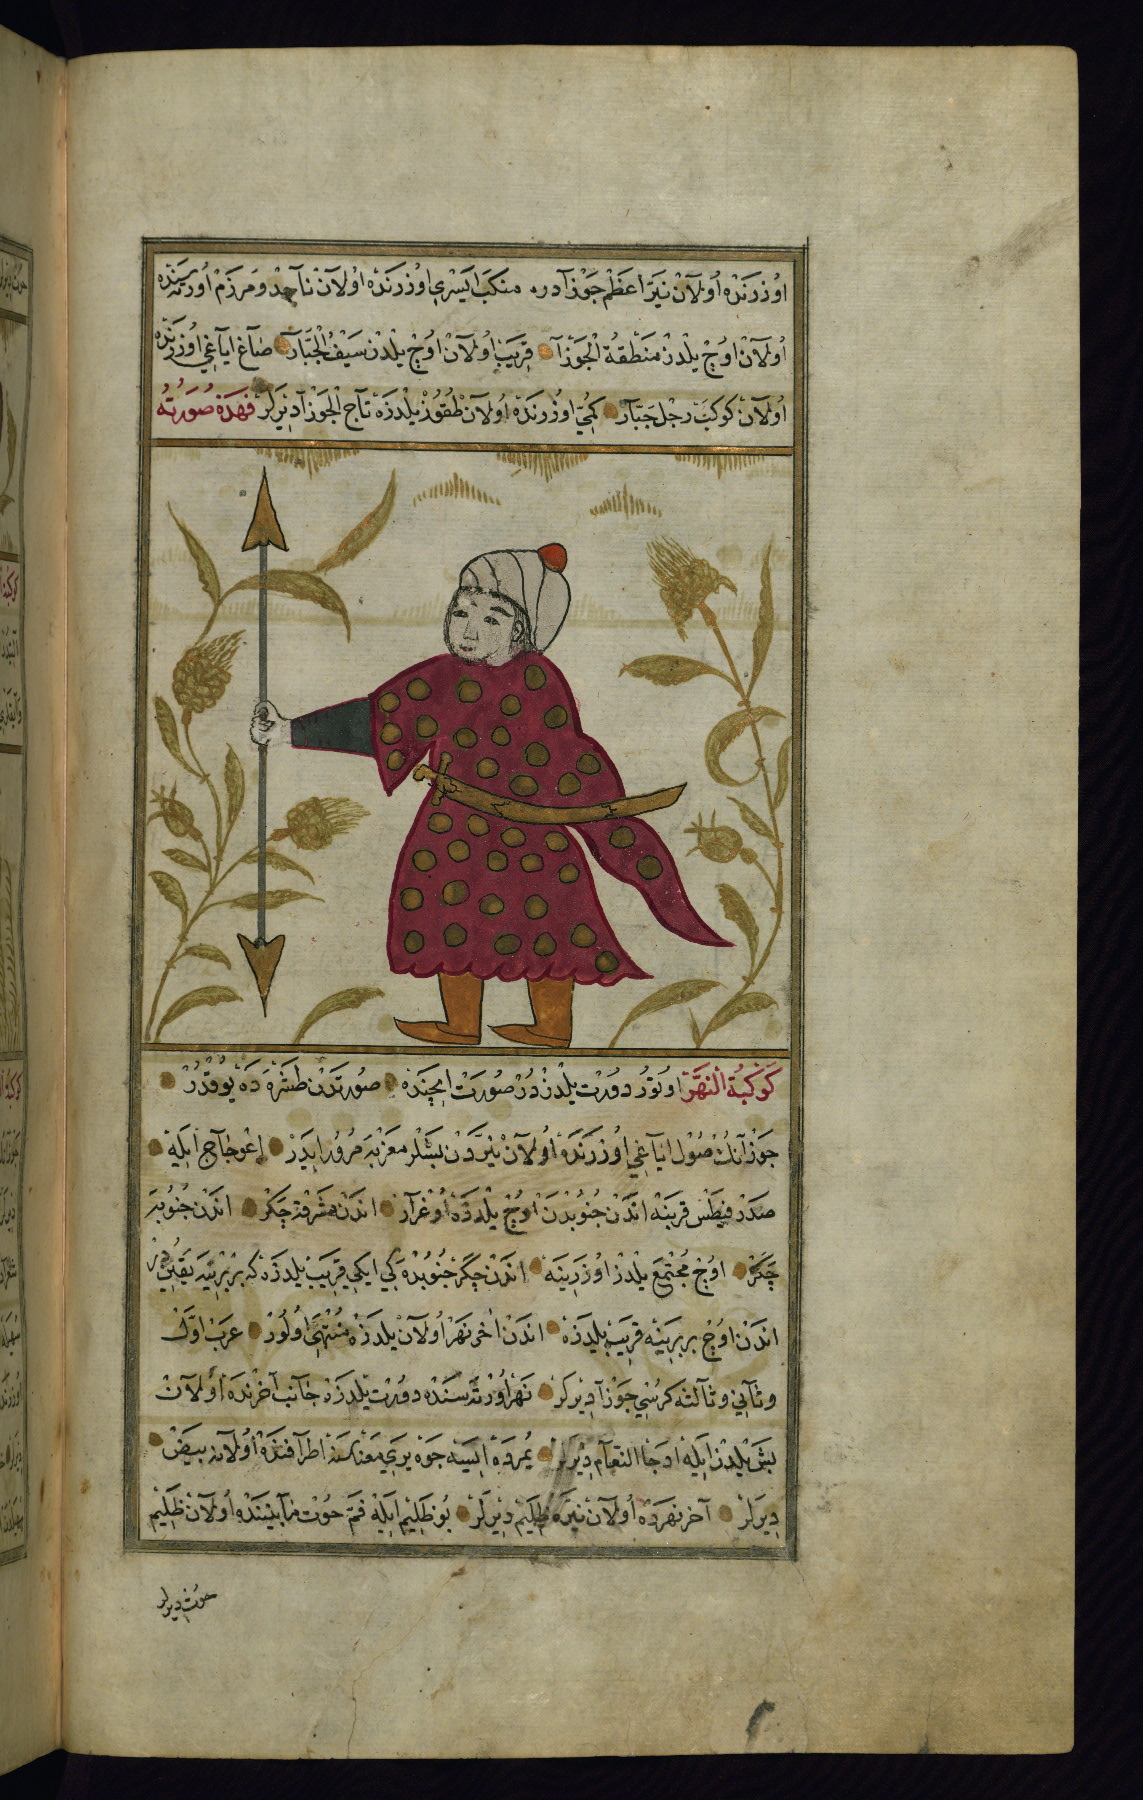 اوزرنده اولان نیر اعظم جوزادر منکب ایسری اوزرنده اولان ناجد و مرزم اورته سنده
اولان اوچ یلدز منطقة الجوزا قریب اولان اوچ یلدز سیف الجبار صاغ ایاغی اوزرنده
اولان کوکب رجل جبار کمی اوزرنده اولان طقوز یلدزه تاج الجوزا دیرلر فهذه صورته
کوکبة النهر اوتوز دورت یلدزدر صورت ایچنده صورتدن طشره ده یوقدر
جوزانک صول ایاغی اوزرنده اولان نیردن بشلر مغربه مرور ایدر اعوجاج ایله
صدر قیطس قربنه اندن جنوبدن اوچ یلدزه اوغرار اندن مشرقه چکر اندن جنوبه
چکر اوچ مجتمع یلدز اوزرینه اندن چکر جنوبده کی ایکی قریب یلدزه که بر برینه یقیندر
اندن اوچ بر برینه قریب یلدزه اندن اخر نهر اولان یلدزه منتهی اولور عرب اول
و ثانی و ثالثه کرسی جوزا دیرلر نهر اورته سنده دورت یلدزه جانب اخرنده اولان
بش یلدز ایله ادحا النعام دیرلر اطرافنده اولانه بیض
دیرلر اخر نهرده اولان نیره ظلیم دیرلر بو ظلیم ایله فم حوت مابیننده اولان ظلیم
حوت دیرلر